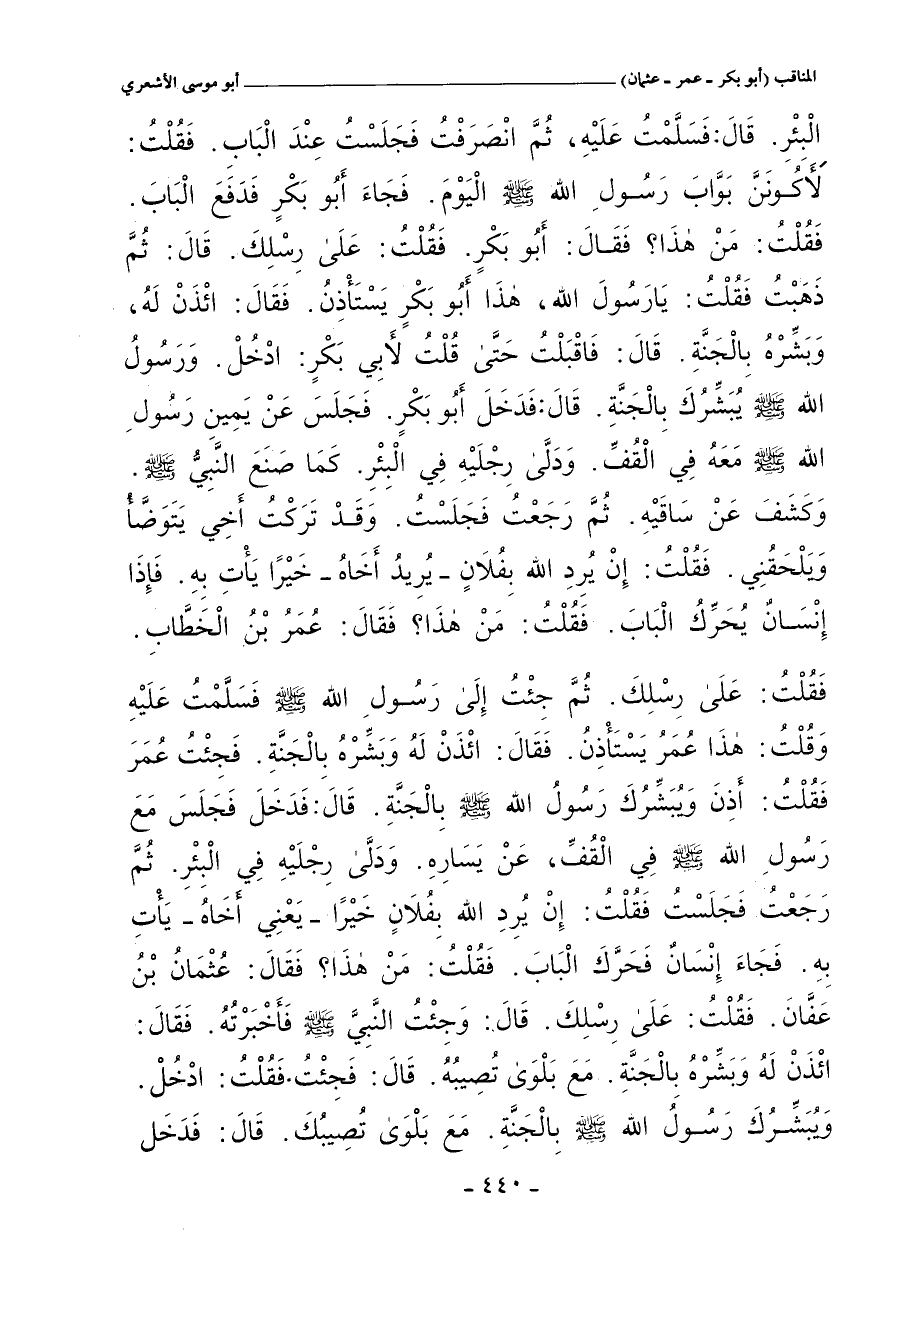 المناقب (أبو بكر - عمر - عثمان) أبو موسى الأشعري
الْبِئْرِ. قَالَ: فَسَلَّمْتُ عَلَيْهِ، ثُمَّ انْصَرَفْتُ فَجَلَسْتُ عِنْدَ الْبَابِ. فَقُلْتُ:
لَأَكُونَنَّ بَوَّابَ رَسُولِ الله ﷺ الْيَوْمَ. فَجَاءَ أَبُو بَكْرٍ فَدَفَعَ الْبَابَ.
فَقُلْتُ: مَنْ هٰذَا؟ فَقَالَ: أَبُو بَكْرٍ. فَقُلْتُ: عَلَىٰ رِسْلِكَ. قَالَ: ثُمَّ
ذَهَبْتُ فَقُلْتُ: يَارَسُولَ الله، هٰذَا أَبُو بَكْرٍ يَسْتَأْذِنُ. فَقَالَ: ائْذَنْ لَهُ،
وَبَشِّرْهُ بِالْجَنَّةِ. قَالَ: فَاقْبَلْتُ حَتَّىٰ قُلْتُ لأَبِي بَكْرٍ: ادْخُلْ. وَرَسُولُ
الله ﷺ يُبَشِّرُكَ بِالْجَنَّةِ. قَالَ: فَدَخَلَ أَبُو بَكْرٍ. فَجَلَسَ عَنْ يَمِينِ رَسُولِ
الله ﷺ مَعَهُ فِي الْقُفِّ. وَدَلَّىٰ رِجْلَيْهِ فِي الْبِئْرِ. كَمَا صَنَعَ النَّبِيُّ ﷺ.
وَكَشَفَ عَنْ سَاقَيْهِ. ثُمَّ رَجَعْتُ فَجَلَسْتُ. وَقَدْ تَرَكْتُ أَخِي يَتَوَضَّأُ
وَيَلْحَقُنِي. فَقُلْتُ: إِنْ يُرِدِ الله بِفُلَانٍ - يُرِيدُ أَخَاهُ - خَيْرًا يَأْتِ بِهِ. فَإِذَا
إِنْسَانٌ يُحَرِّكُ الْبَابَ. فَقُلْتُ: مَنْ هٰذَا؟ فَقَالَ: عُمَرُ بْنُ الْخَطَّابِ.
فَقُلْتُ: عَلَىٰ رِسْلِكَ. ثُمَّ جِئْتُ إِلَىٰ رَسُولِ الله ﷺ فَسَلَّمْتُ عَلَيْهِ
وَقُلْتُ: هٰذَا عُمَرُ يَسْتَأْذِنُ. فَقَالَ: ائْذَنْ لَهُ وَبَشِّرْهُ بِالْجَنَّةِ. فَجِئْتُ عُمَرَ
فَقُلْتُ: أَذِنَ وَيُبَشِّرُكَ رَسُولُ الله ﷺ بِالْجَنَّةِ. قَالَ: فَدَخَلَ فَجَلَسَ مَعَ
رَسُولِ الله ﷺ فِي الْقُفِّ، عَنْ يَسَارِهِ. وَدَلَّىٰ رِجْلَيْهِ فِي الْبِئْرِ. ثُمَّ
رَجَعْتُ فَجَلَسْتُ فَقُلْتُ: إِنْ يُرِدِ الله بِفُلَانٍ خَيْرًا - يَعْنِي أَخَاهُ - يَأْتِ
بِهِ. فَجَاءَ إِنْسَانٌ فَحَرَّكَ الْبَابَ. فَقُلْتُ: مَنْ هٰذَا؟ فَقَالَ: عُثْمَانُ بْنُ
عَفَّانَ. فَقُلْتُ: عَلَىٰ رِسْلِكَ. قَالَ: وَجِئْتُ النَّبِيَّ ﷺ فَأَخْبَرْتُهُ. فَقَالَ:
ائْذَنْ لَهُ وَبَشِّرْهُ بِالْجَنَّةِ. مَعَ بَلْوَىٰ تُصِيبُهُ. قَالَ: فَجِئْتُ. فَقُلْتُ: ادْخُلْ.
وَيُبَشِّرُكَ رَسُولُ الله ﷺ بِالْجَنَّةِ. مَعَ بَلْوَىٰ تُصِيبُكَ. قَالَ: فَدَخَلَ
- ٤٤٠ -